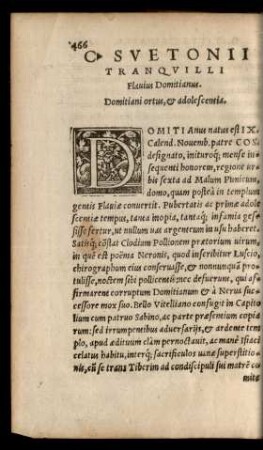 466
C. SVETONII
TRANQVILLI
Flauius Domitianus.
Domitiani ortus, & adolescentia.
DOMITIAnus natus est IX.
Calend. Nouemb. patre COS.
designato, inituroq; mense in-
sequenti honorem, regione ur-
bis sexta ad Malum Punicum,
domo, quam postea in templum
gentis Flauiæ conuertit. Pubertatis ac primæ adole
scentiæ tempus, tanta inopia, tantaq; infamia ges-
sisse fertur, ut nullum uas argenteum in usu haberet.
Satisq; cõstat Clodium Pollionem prætorium uirum,
in quẽ est poëma Neronis, quod inscribitur Luscio,
chirographum eius conseruasse, & nonnunquã pro-
tulisse, noctem sibi pollicentis: nec defuerunt, qui af-
firmarent corruptum Domitianum & à Nerua suc-
cessore mox suo. Bello Vitelliano confugit in Capito
lium cum patruo Sabino, ac parte præsentium copia
rum: sed irrumpentibus aduersarijs, & ardente tem
plo, apud ædituum clàm pernoctauit, ac manè Isiaci
celatus habitu, interq; sacrificulos uanæ superstitio-
nis, cũ se trans Tiberim ad condiscipuli sui matrẽ co
mite